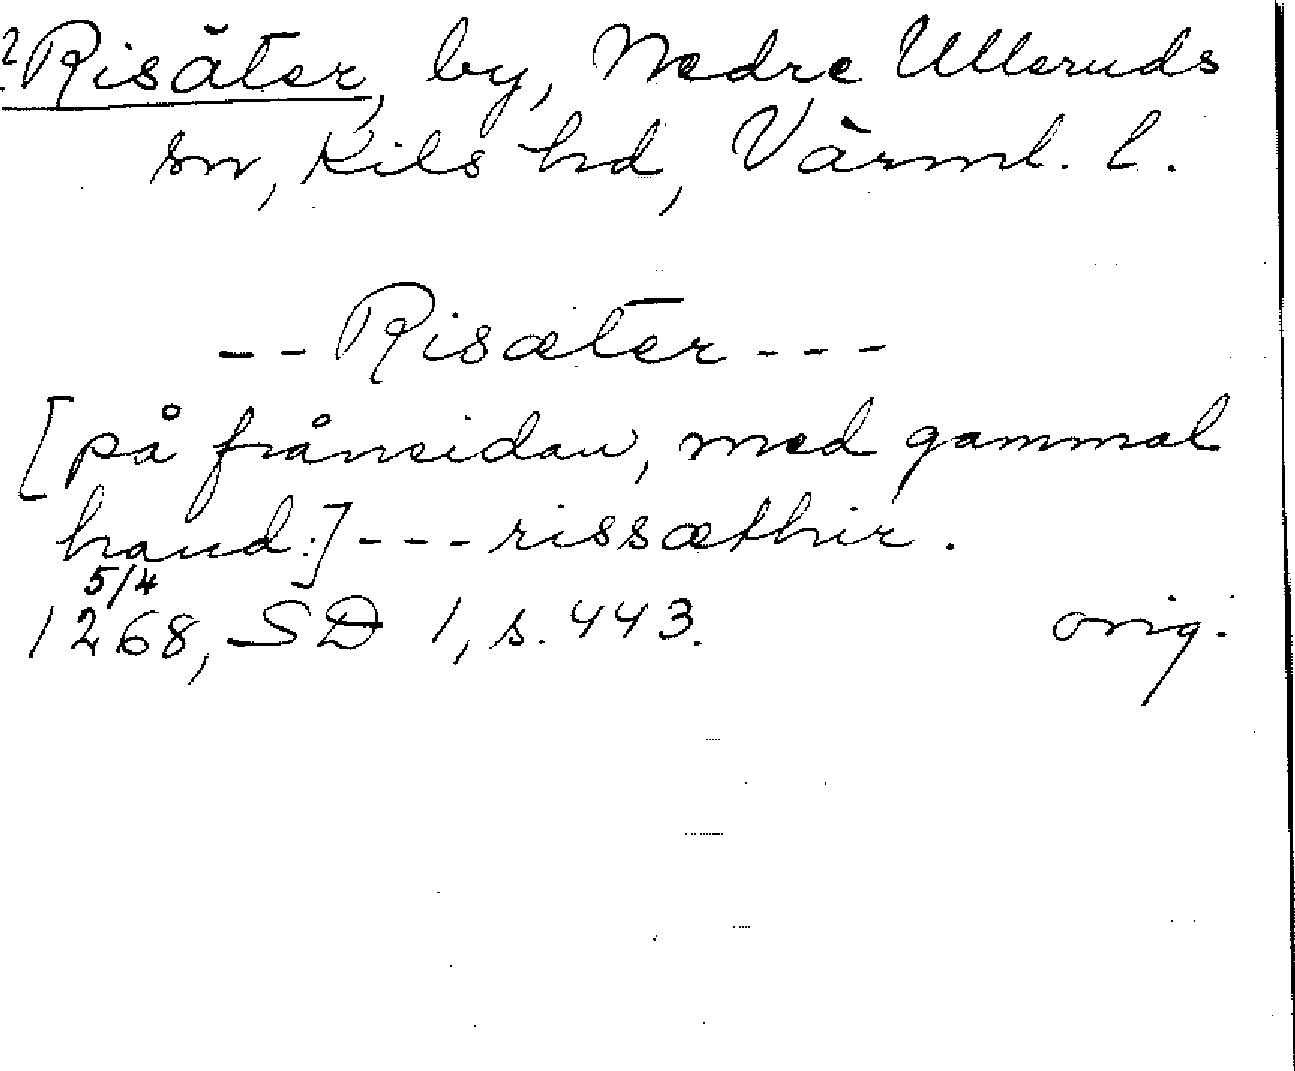 ? Risäter, by, Nedre Ulleruds
sn, Kils hd, Värml. l.
-- Risæter ---
[på frånsidan, med gammal
hand:] --- rissæthir.
5/4
1268, SD 1, s. 443. orig.